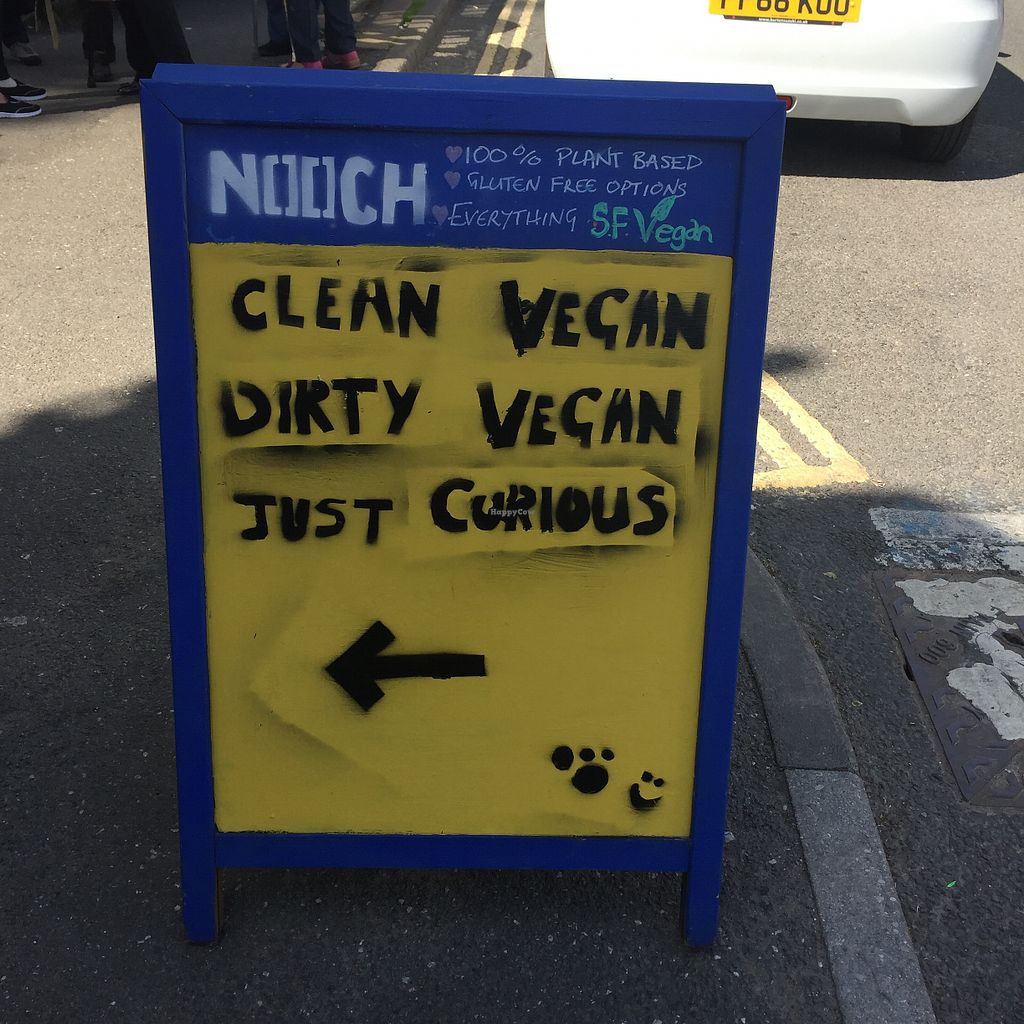 NOOCH
100% PLANT BASED
GLUTEN FREE OPTIONS
EVERYTHING S.F. Vegan
CLEAN VEGAN
DIRTY VEGAN
JUST CURIOUS
HappyCow